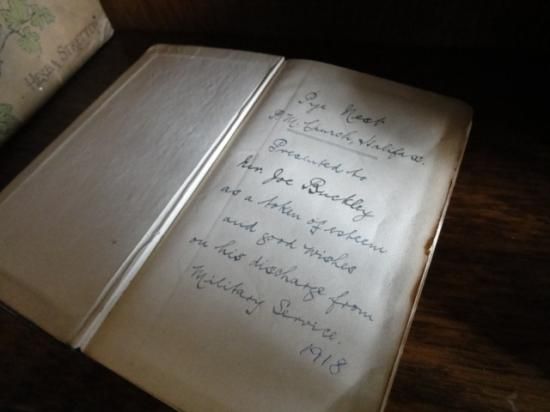 HESBA STRETTON
Pye Nest
P.M. Church, Halifax.
Presented to
Joe Buckley
as a token of esteem
and good wishes
on his discharge from
Military Service.
1918